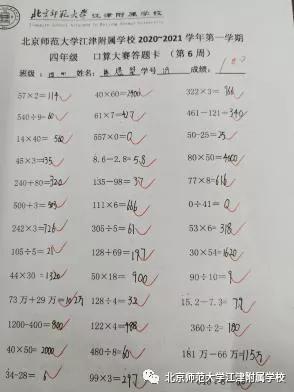 北京师范大学江津附属学校
北京师范大学江津附属学校 2020~2021 学年第一学期
四年级 口算大赛答题卡 (第 6 周)
班级: 姓名: 学号: 成绩: 100
57×2=114 40×60=2400 322×3=966
540÷9=60 61×7=427 461-121=340
14×40=560 557×0=0 50-25=25
45×3=135 8.6-2.8=5.8 80×50=4000
240+80=320 135-98=37 77×8=616
500+3=503 111×6=666 0÷41=0
242×3=726 305÷5=61 53×6=318
105÷5=21 128+69=197 30×54=1620
44×30=1320 50×18=900 90÷10=9
73 万+29 万=102万 128÷4=32 15.2-7.3=7.9
1200-400=800 122×4=488 360÷2=180
40×50=2000 480÷8=60 181 万-66 万=115万
34-28=6 99×3=297
北京师范大学江津附属学校